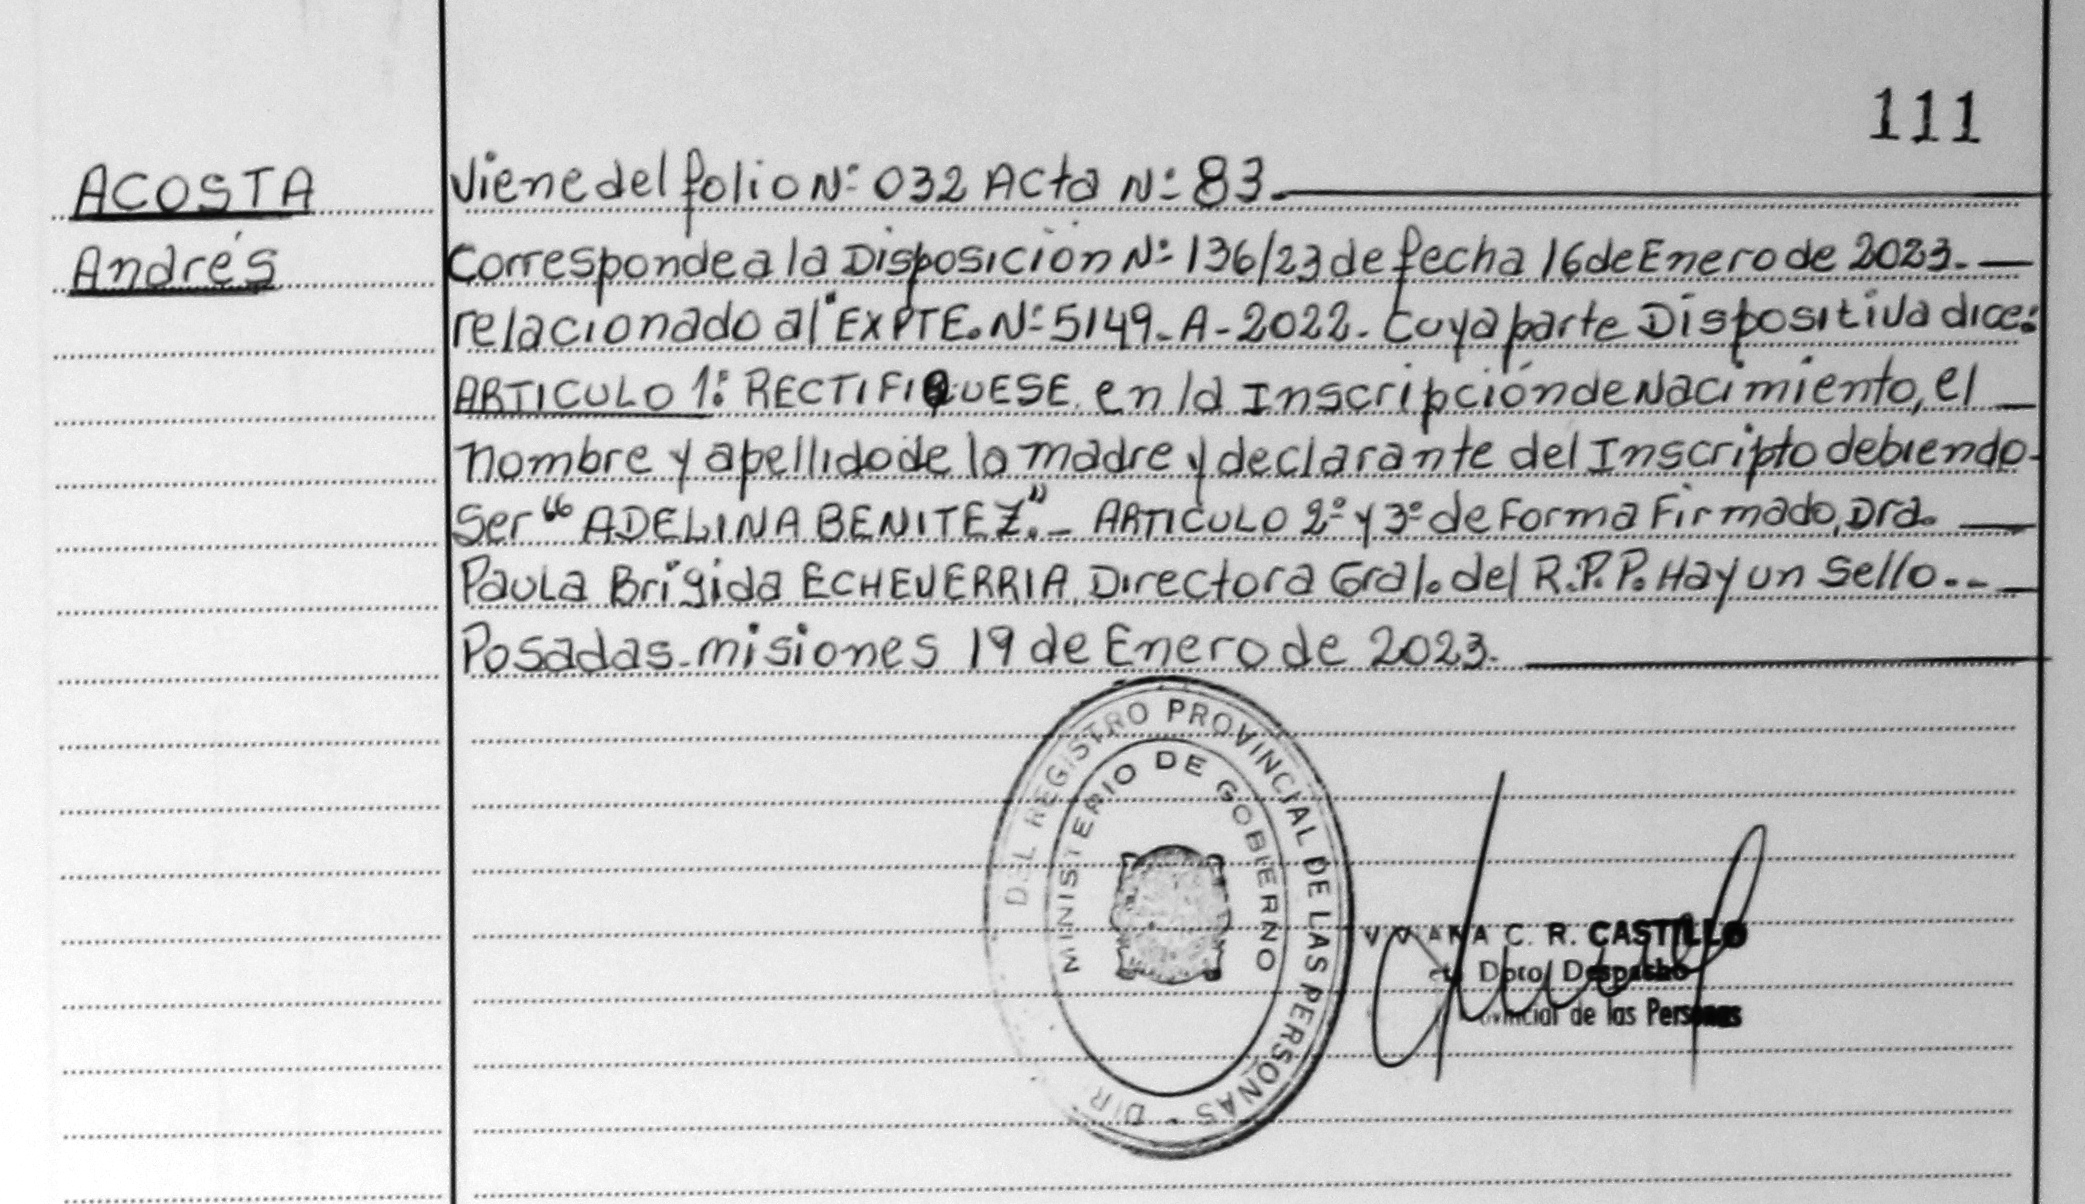 111
ACOSTA
Andrés
Viene del folio Nº 032 Acta Nº 83.
Corresponde a la Disposición Nº 136/23 de fecha 16 de Enero de 2023.
relacionado al "EXPTE. Nº 5149-A-2022. Cuya parte Dispositiva dice:
ARTICULO 1º: RECTIFIQUESE en la Inscripción de Nacimiento, el
nombre y apellido de la madre y declarante del Inscripto debiendo
Ser "ADELINA BENITEZ". ARTICULO 2º y 3º de Forma Firmado, Dra.
Paula Brígida ECHEVERRIA, Directora Gral. del R.P.P. Hay un Sello..
Posadas. misiones 19 de Enero de 2023.
DIR DEL REGISTRO PROVINCIAL DE LAS PERSONAS -
MINISTERIO DE GOBIERNO
C. R. CASTILLO
Dpto. Despacho
de las Personas